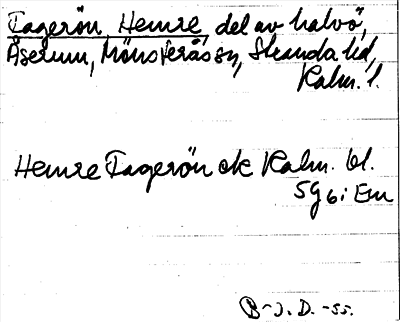 Fagerön, Hemre, del av halvö,
Åserum, Mönsterås sn, Stranda hd,
Kalm. l.
Hemre Fagerön ek Kalm. bl.
5g6i Em
B-J. D. -55.